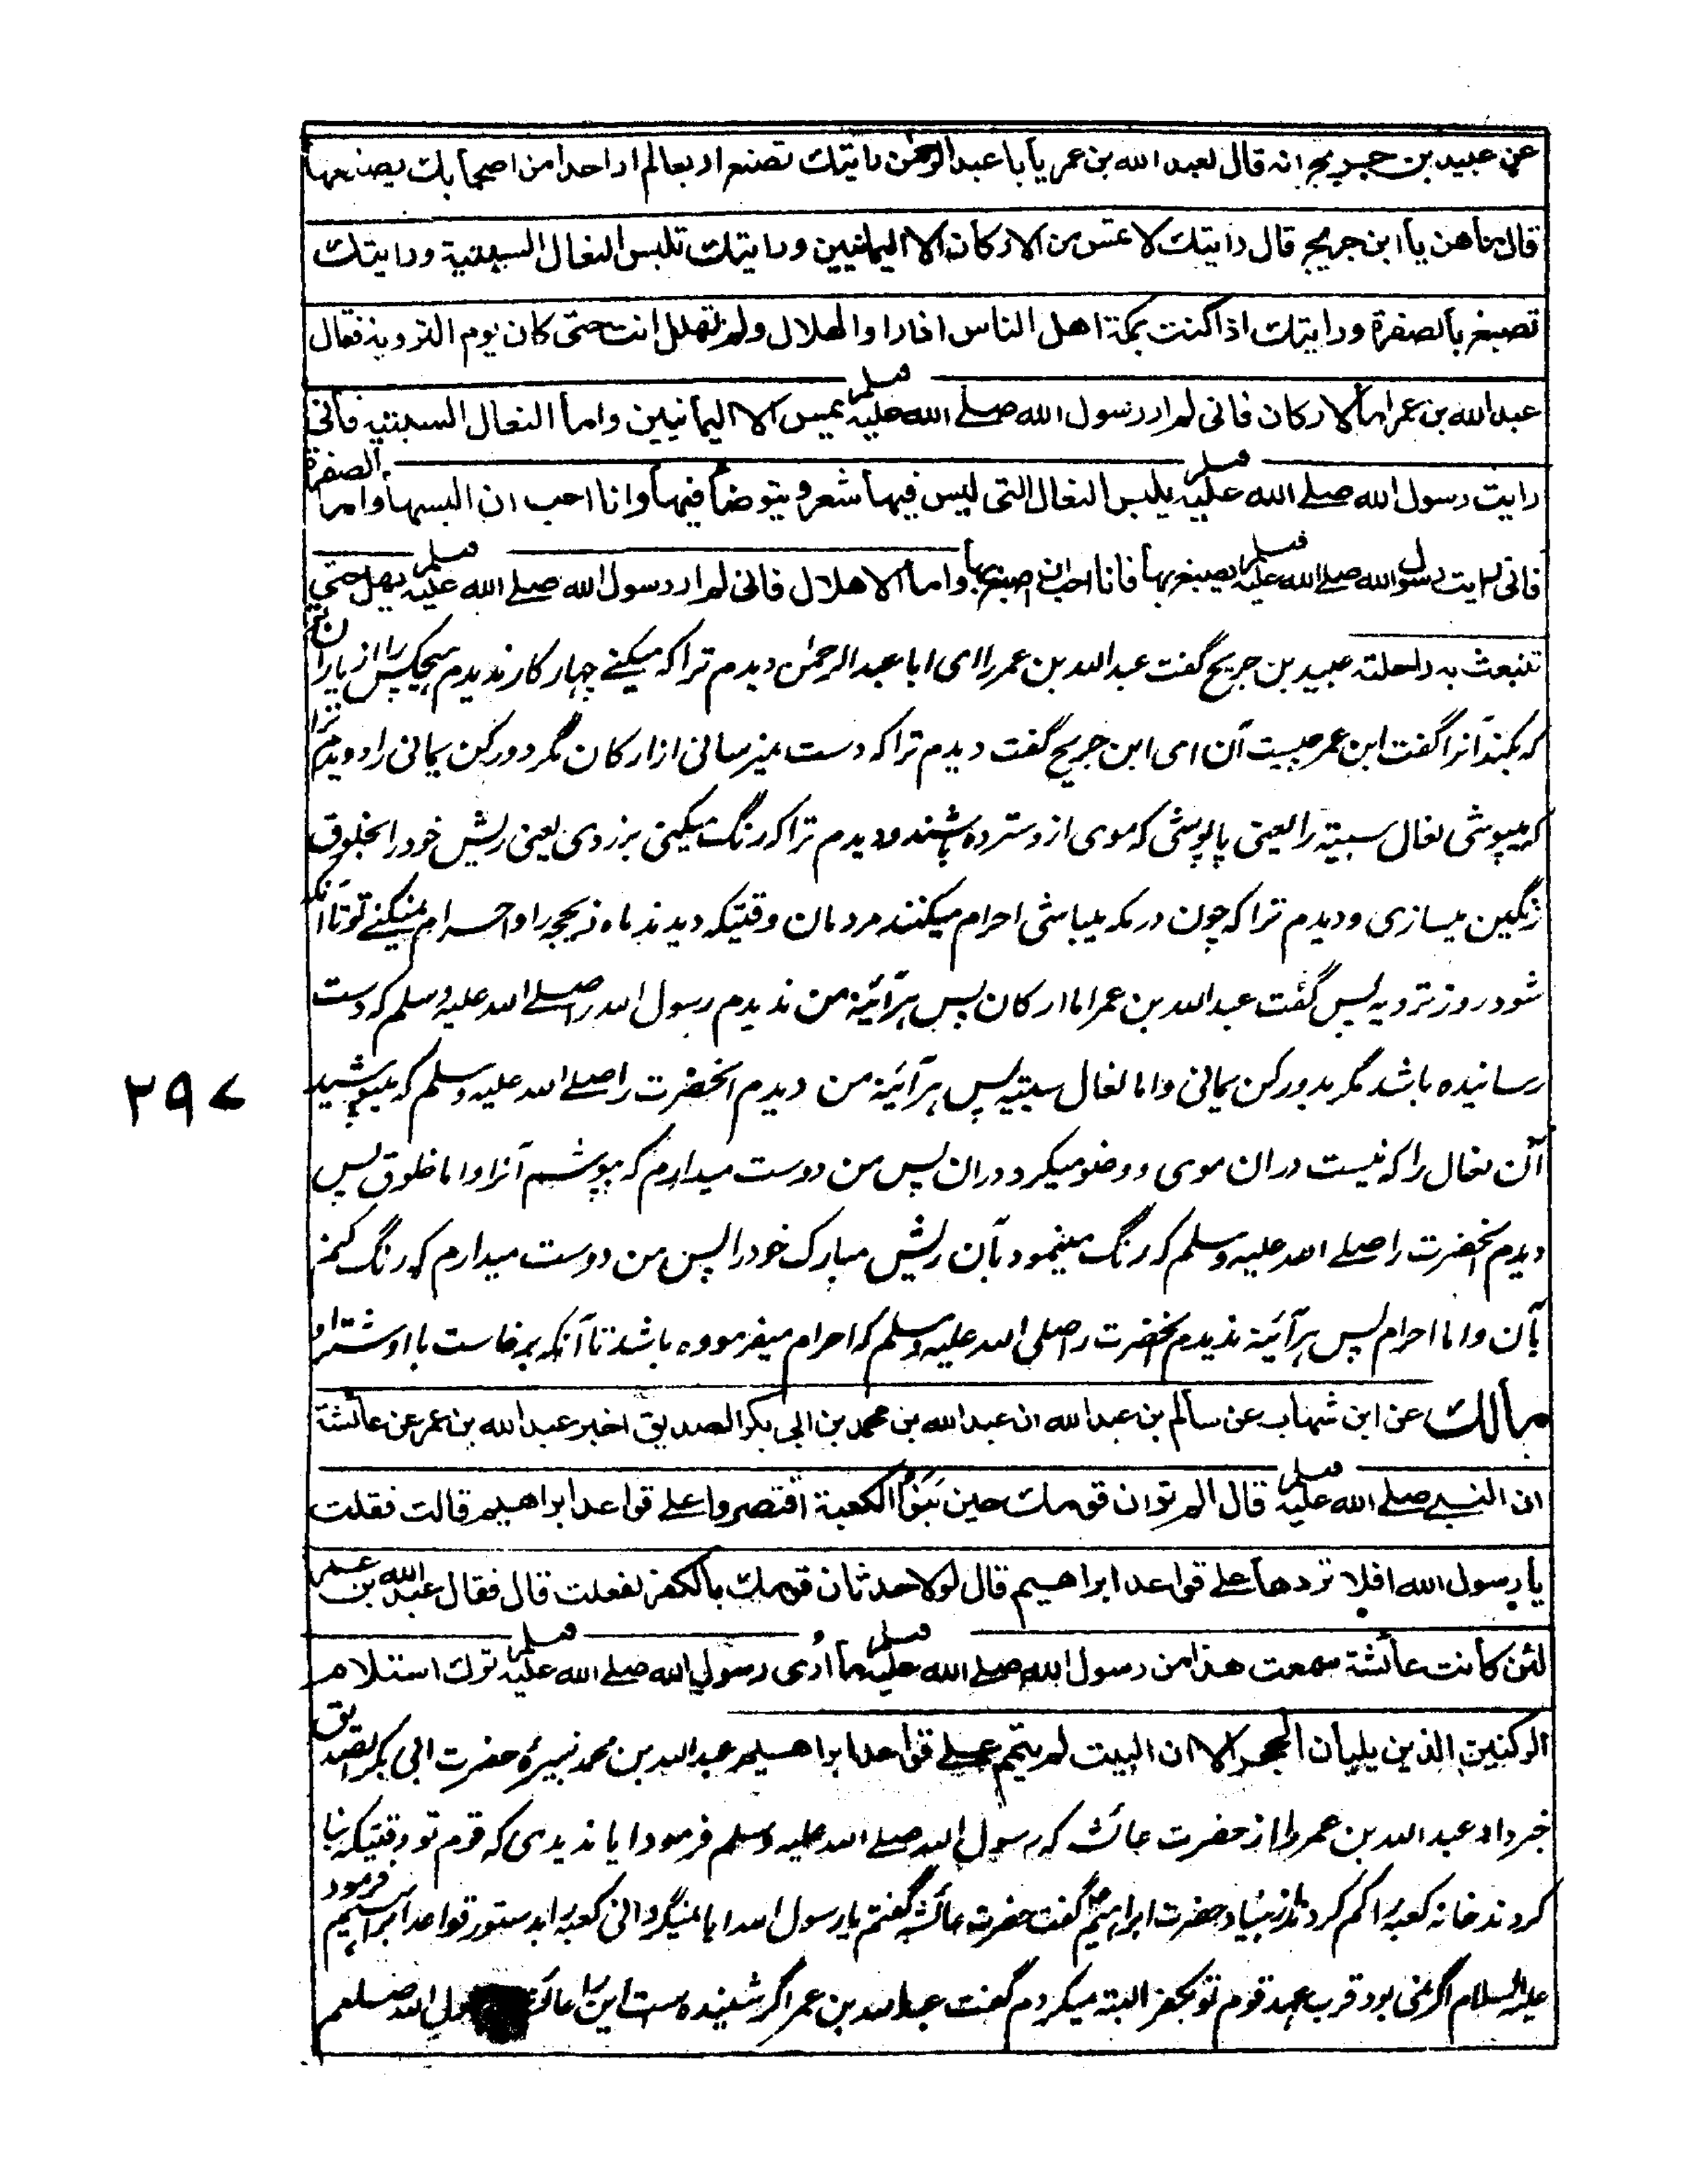 عن عبيد بن جريج انه قال لعبد الله بن عمر يا با عبد الرحمن رايتك تصنع اربعا لم ار احدا من اصحابك يصنعها
قال ما هن يا ابن جريج قال رايتك لا تمس من الاركان الا اليمانيين ورايتك تلبس النعال السبتية ورايتك
تصبغ بالصفرة ورايتك اذا كنت بمكة اهل الناس اذا راوا الهلال ولم تهلل انت حتى كان يوم التروية فقال
عبد الله بن عمر اما الاركان فانى لم ار رسول الله صلے الله عليه وسلم يمس الا اليمانيين واما النعال السبتية فانى
رايت رسول الله صلے الله عليه وسلم يلبس النعال التى ليس فيها شعر و يتوضأ فيها وانا احب ان البسها واما الصفرة
فانى رايت رسول الله صلے الله عليه وسلم يصبغ بها فانا احب ان اصبغ بها واما الاهلال فانى لم ار رسول الله صلے الله عليه وسلم يهل حتى
تنبعث به راحلته عبید بن جریج گفت عبد الله بن عمر را ای ابا عبد الرحمٰن دیدم ترا که میکنے چهار کار ندیدم هیچکس را از یاران تو
که بکند آنرا گفت ابن عمر چیست آن ای ابن جریج گفت دیدم ترا که دست نمیرسانی از ارکان مگر دو رکن یمانی را و دیدم ترا
که میپوشی نعال سبتیه را یعنی پاپوشی که موی از و سترده باشند و دیدم ترا که رنگ میکنی بزردی یعنی ریش خود را بخلوق
رنگین میسازی و دیدم ترا که چون در مکه میباشی احرام میکنند مردمان وقتیکه دیدند ماه ذیحجه را و احرام نمیکنے تو تا آنکه
شود روز ترویه پس گفت عبد الله بن عمر اما ارکان پس هرآئینه من ندیدم رسول الله را صلے الله علیه وسلم که دست
رسانیده باشد مگر بدو رکن یمانی و اما نعال سبتیه پس هرآئینه من دیدم آنحضرت را صلے الله علیه وسلم که میپوشید
آن نعال را که نیست دران موی و وضو میکرد دران پس من دوست میدارم که بپوشم آنرا و اما خلوق پس
دیدم آنحضرت را صلے الله علیه وسلم که رنگ مینمود بآن ریش مبارک خود را پس من دوست میدارم که رنگ کنم
بآن و اما احرام پس هرآئینه ندیدم آنحضرت را صلی الله علیه وسلم که احرام میفرموده باشد تا آنکه برخاست با او شتر او
مالك عن ابن شهاب عن سالم بن عبد الله ان عبد الله بن محمد بن ابى بكر الصديق اخبر عبد الله بن عمر عن عائشة
ان النبى صلے الله عليه وسلم قال الم ترى ان قومك حين بنوا الكعبة اقتصروا على قواعد ابراهيم قالت فقلت
يا رسول الله افلا تردها على قواعد ابراهيم قال لولا حدثان قومك بالكفر لفعلت قال فقال عبد الله بن عمر
لئن كانت عائشة سمعت هذا من رسول الله صلے الله عليه وسلم ما ارى رسول الله صلے الله عليه وسلم ترك استلام
الركنين الذين يليان الحجر الا ان البيت لم يتم على قواعد ابراهيم عبد الله بن محمد نبیرهٔ حضرت ابی بکر الصدیق
خبر داد عبد الله بن عمر را از حضرت عائشه که رسول الله صلے الله علیه وسلم فرمود ایا ندیدی که قوم تو وقتیکه بنا
کردند خانه کعبه را کم کردند از بنیاد حضرت ابراهیم گفت حضرت عائشه گفتم یا رسول الله ایا نمیگردانی کعبه را بدستور قواعد ابراهیم فرمود
علیه السلام اگر نمی بود قرب عهد قوم تو بکفر البته میکردم گفت عبد الله بن عمر اگر شنیده ست این را عائشه رسول الله صلعم
۳۹۷